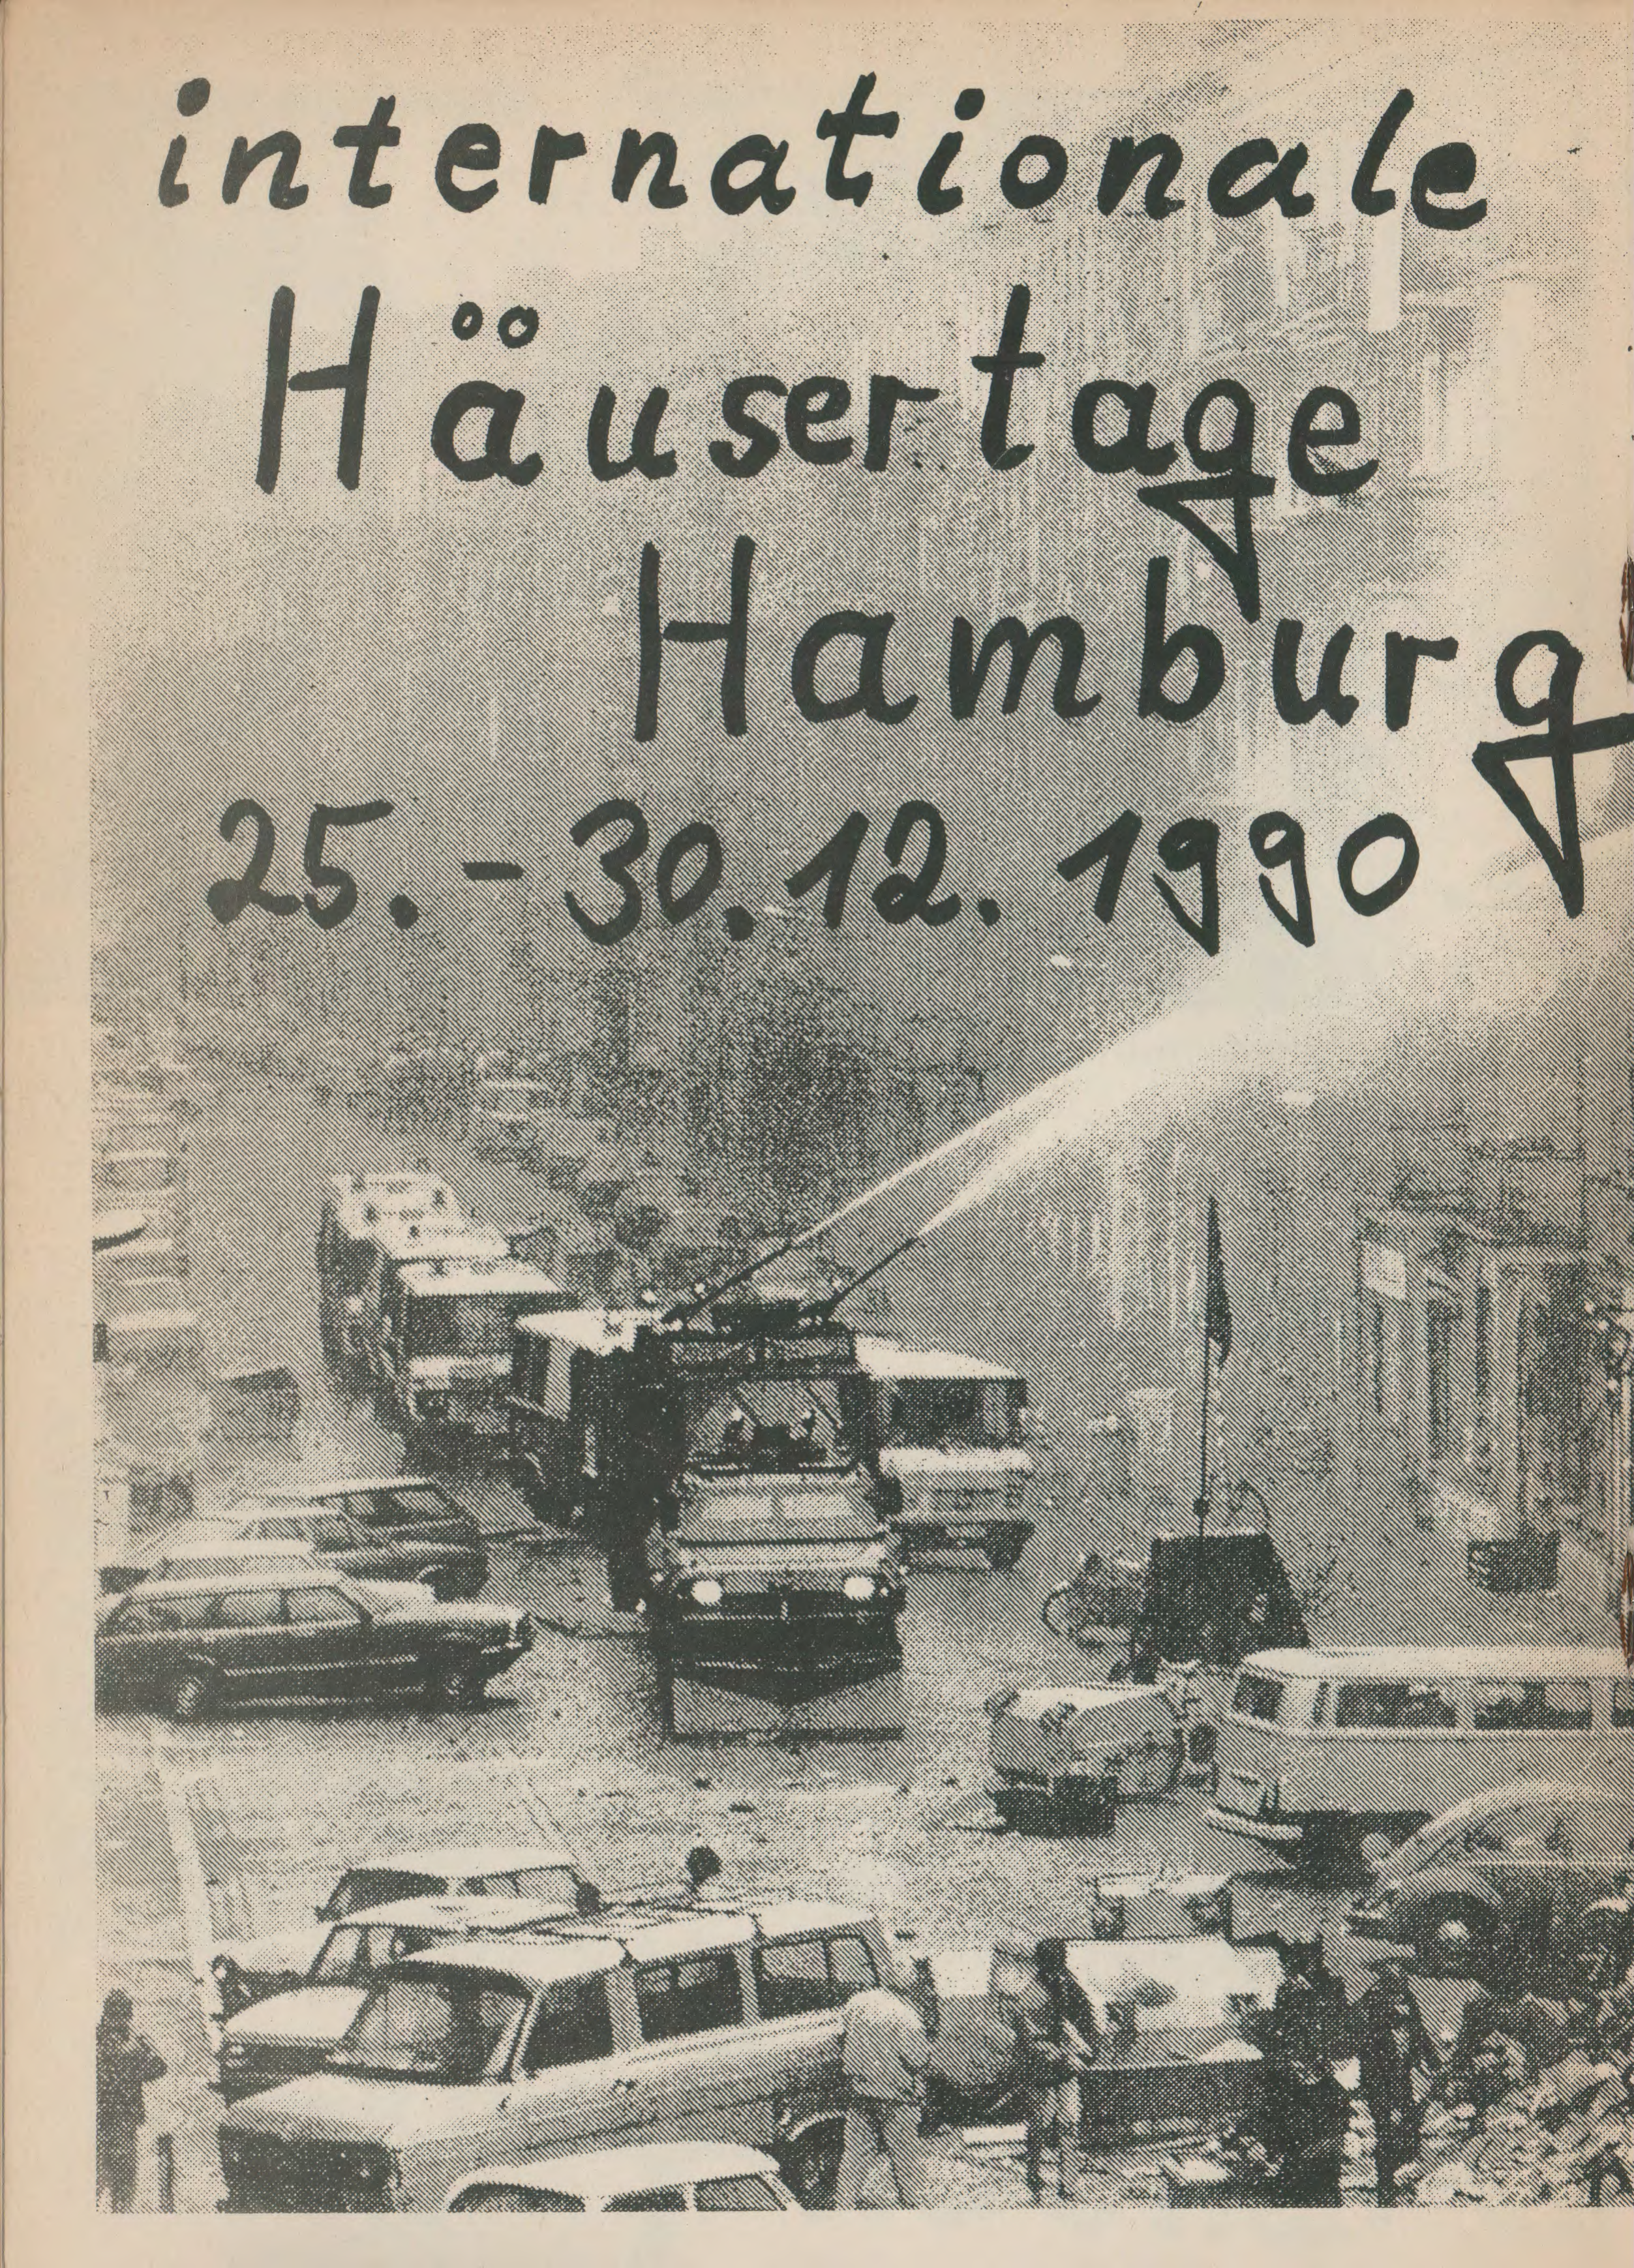 internationale
Häusertage
Hamburg
25.-30.12.1990